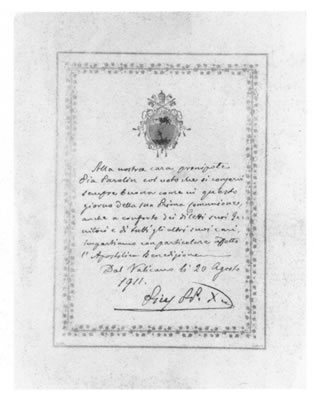 Alla nostra cara pronipote
Pia Parolin col voto che si conservi
sempre buona come in questo
giorno della sua Prima Comunione,
anche a conforto dei diletti suoi Ge-
nitori e di tutti gli altri suoi cari
impartiamo con particolare affetto
l'Apostolica Benedizione
Dal Vaticano li 20 Agosto
1911.
Pius PP. X